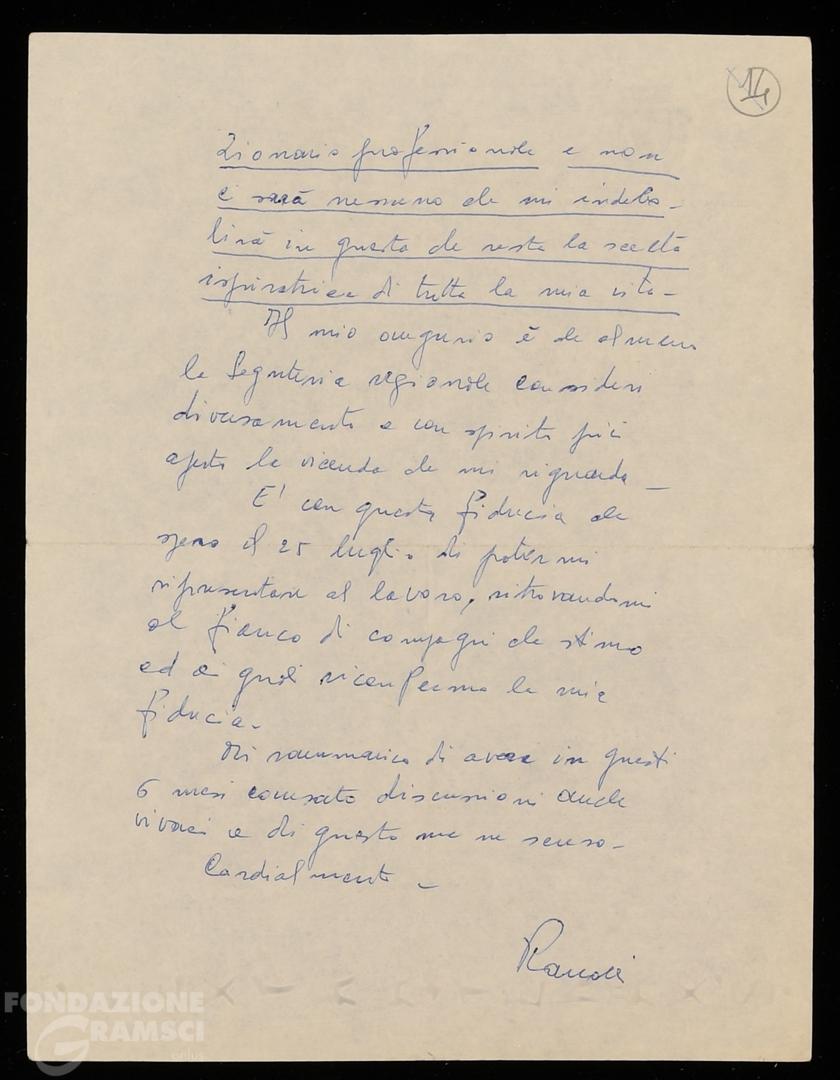 14
zionario professionale e non
ci sarà nessuno che mi indebo-
lirà in questa che resta la scelta
ispiratrice di tutta la mia vita-
Il mio augurio è che almeno
la Segreteria regionale consideri
diversamente e con spirito più
aperto la vicenda che mi riguarda -
E' con questa fiducia che
spero il 25 luglio di potermi
ripresentare al lavoro, ritrovandomi
al fianco di compagni che stimo
ed ai quali riconfermo la mia
fiducia-
Mi rammarico di avere in questi
6 mesi causato discussioni anche
vivaci e di questo me ne scuso-
Cordialmente -
FONDAZIONE
GRAMSCI
onlus